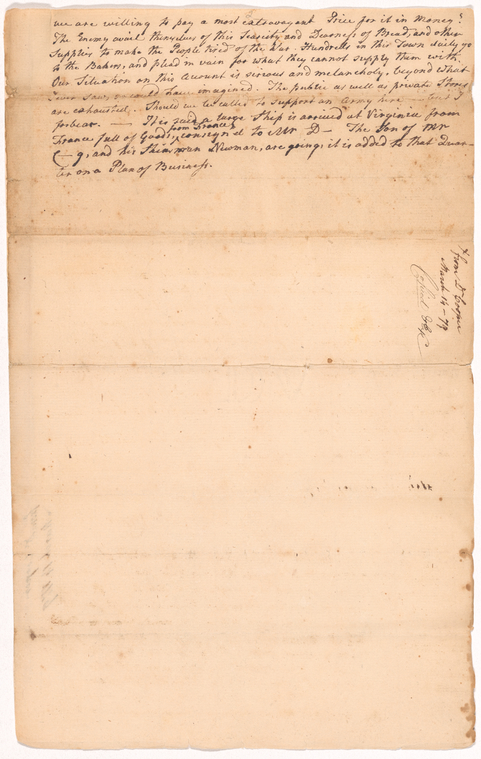 we are willing to pay a most extravagant Price for it in Money.
The Enemy avail themselves of this Scarcity and Dearness of Bread, and other
Supplies to make the People tired of the War. Hundreds in this Town daily go
to the Bakers, and plead in vain for what they cannot supply them with.
Our Situation on this Account is serious and melancholy, beyond what
I ever saw, or could have imagined. The public as well as private Stores
are exhausted. Should we be called to support an Army here — but I
forbear. — It is said a large Ship is arrived at Virginia from
France full of Goods from France, consign'd to Mr D— The Son of Mr
C—g, and his Kinsman Newman, are going, it is added to that Quar-
ter on a Plan of Business.
from Dr Cooper
March 14 - 79
Copied